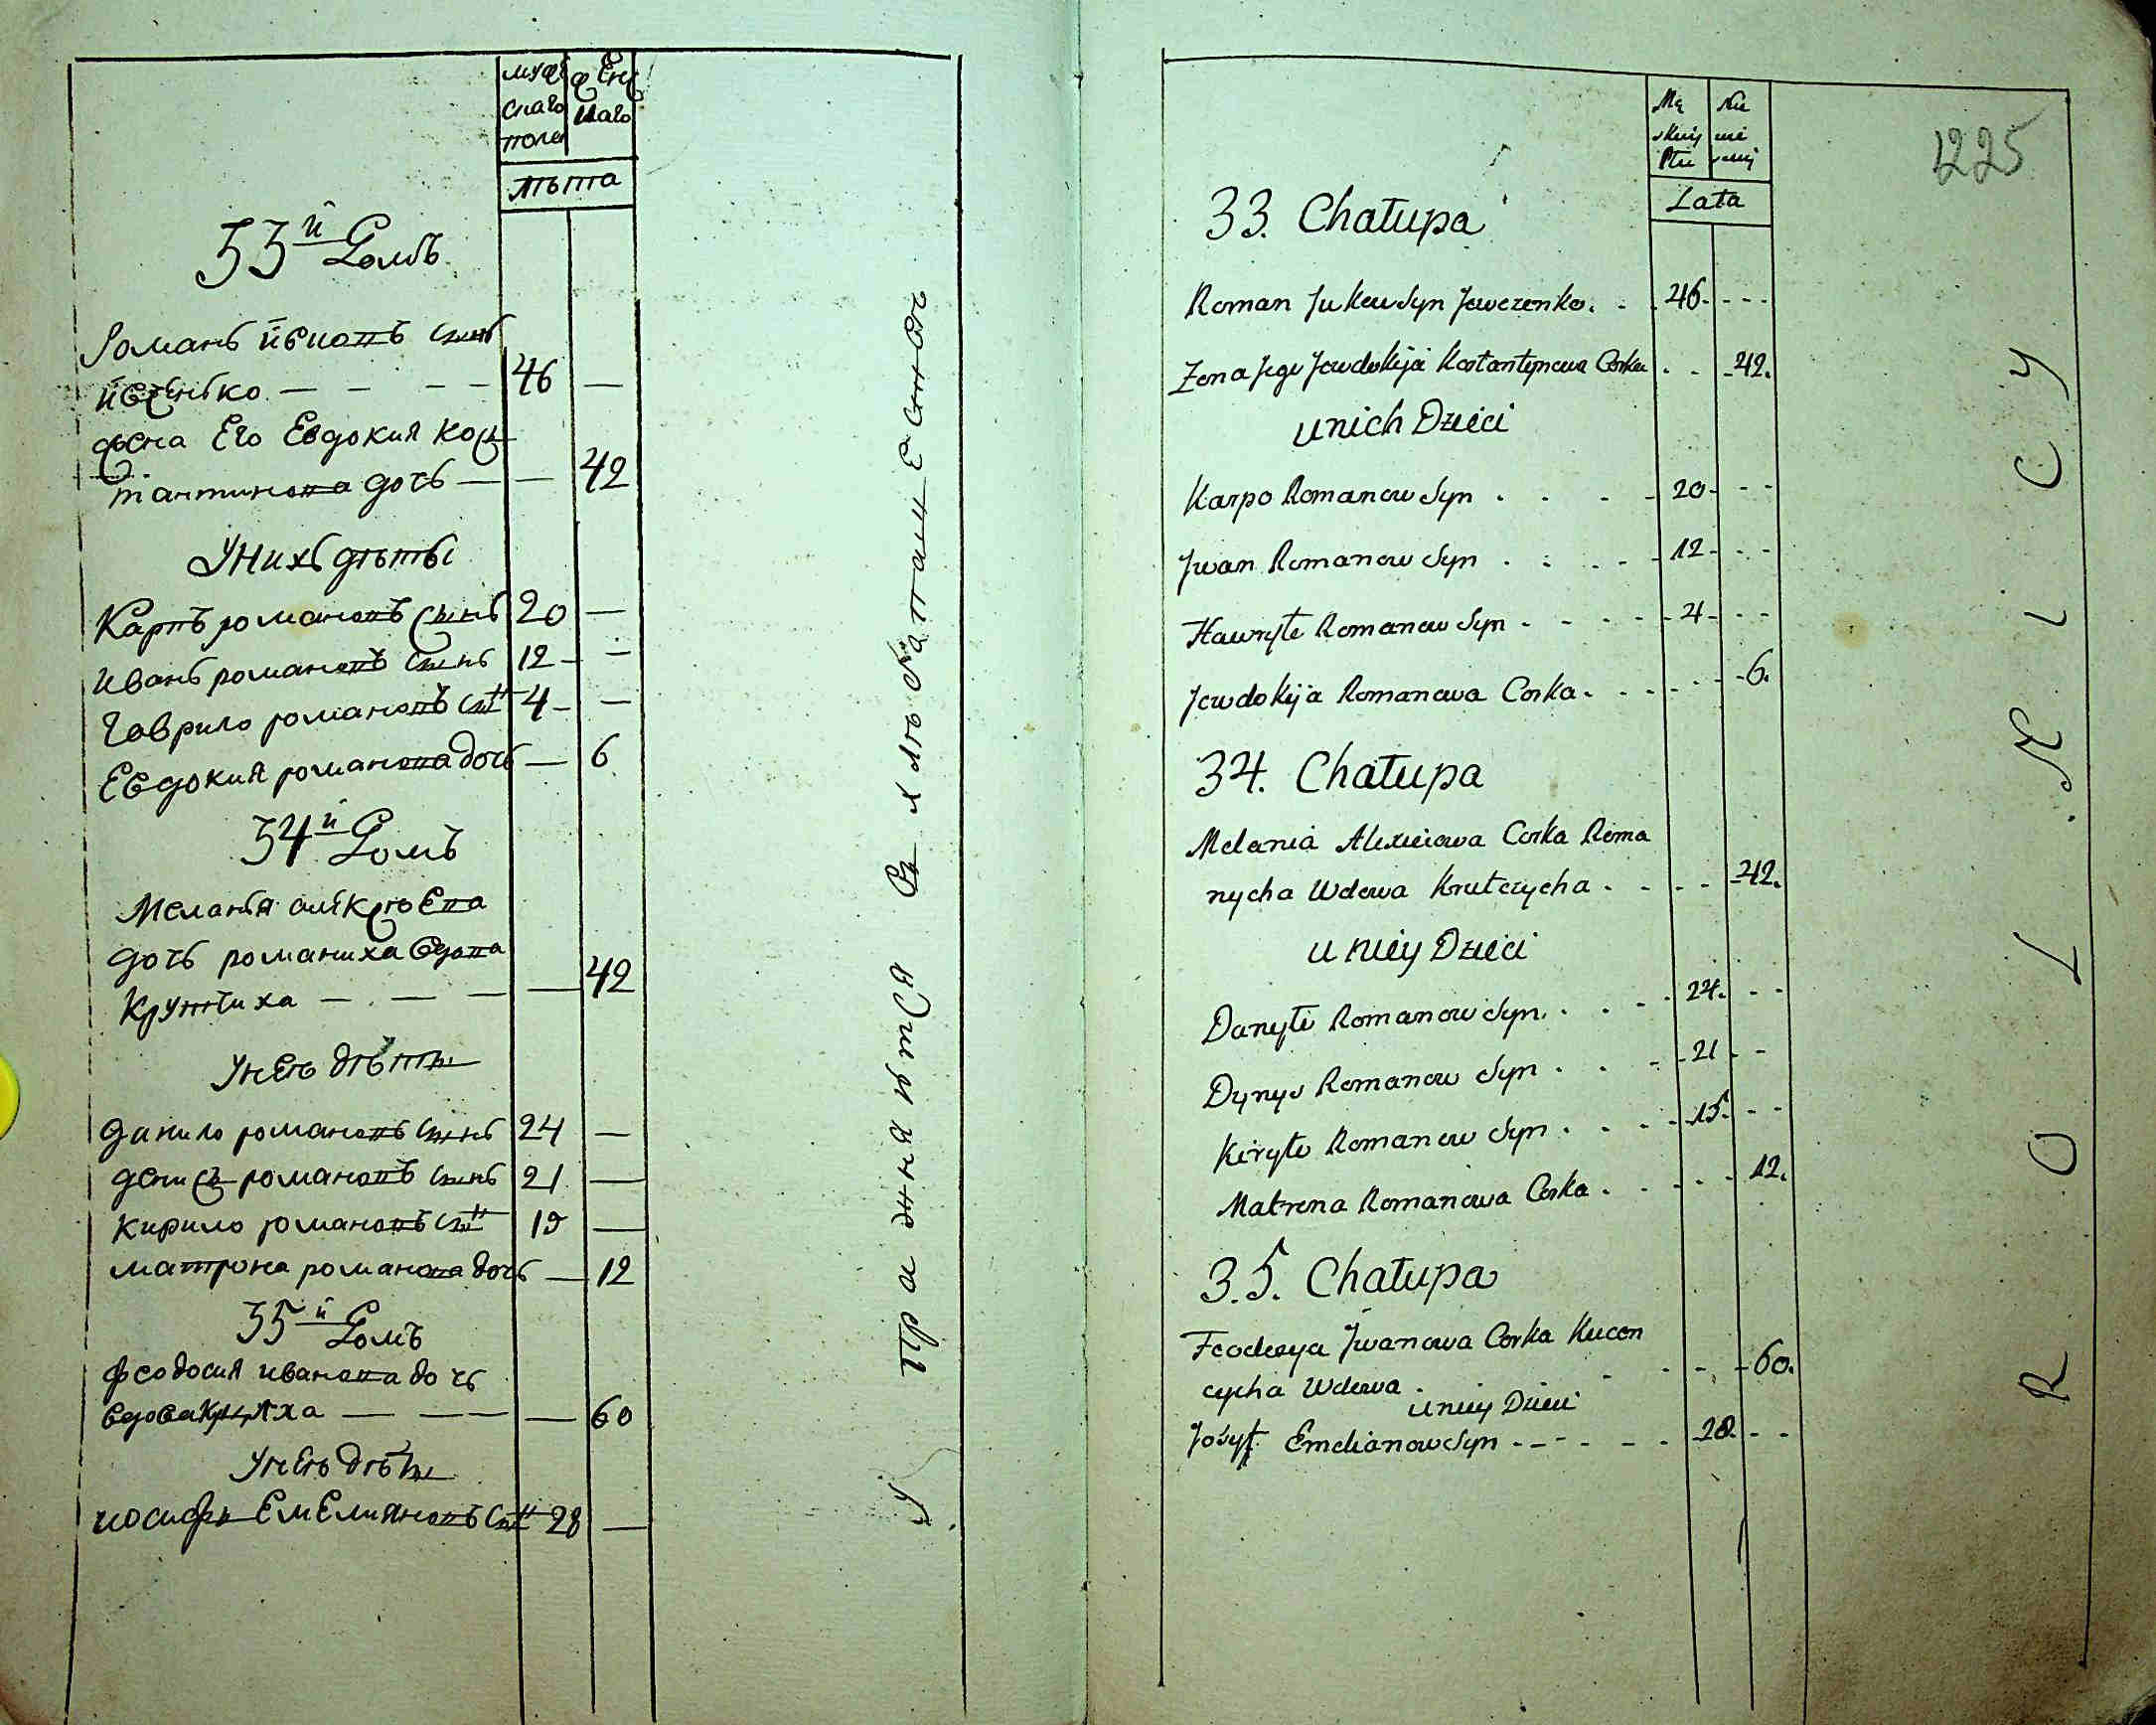 мужескаго пола
женскаго
лѣта
33й Домъ
Романъ Ивковъ сынъ
Ивченько — — — — 46 —
жена Его Евдокия Кос
тантинова дочь — — 42
У нихъ дѣты
Карпъ романовъ сынъ 20 —
Иванъ романовъ сынъ 12 —
Гаврило романовъ сынъ 4 —
Евдокия романова дочь — 6
34й Домъ
Меланья алѣксѣева
дочь романиха вдова
Крутчиха — — — — 42
У нея дѣты
данило романовъ сынъ 24 —
денисъ романовъ сынъ 21 —
кирило романовъ сынъ 15 —
матрона романова дочь — 12
35й Домъ
феодосия иванова дочь
вдова — — — 60
У нея дѣты
иосифъ Емелияновъ сынъ 28 —
1225
Lata
33. Chałupa
Roman Jukow Syn Jowczenko. . . 46. - - -
Zona Jego Jewdokija Kostantynowa Corka . . - 42.
u nich Dzieci
Karpo Romanow Syn . . . - 20 - - -
Jwan Romanow Syn . . . . - 12 - - -
Hawryło Romanow Syn . - - - - 4 - - -
Jewdokija Romanowa Corka . - - - . - 6.
34. Chałupa
Melania Alexieiowa Corka Roma
nycha Wdowa Krutczycha . - - - - 42.
u niey Dzieci
Danyło Romanow Syn . . . - 24. - -
Dynys Romanow Syn . . . - 21 - -
Kiryło Romanow Syn . . . - 15. - -
Matrona Romanowa Corka . . - . - 12.
35. Chałupa
Feodosya Jwanowa Corka Kucon
cycha Wdowa . . - . - 60.
u niey Dzieci
Josyf Emelianow Syn - - - - - - 28. - -
R O L N I C Y